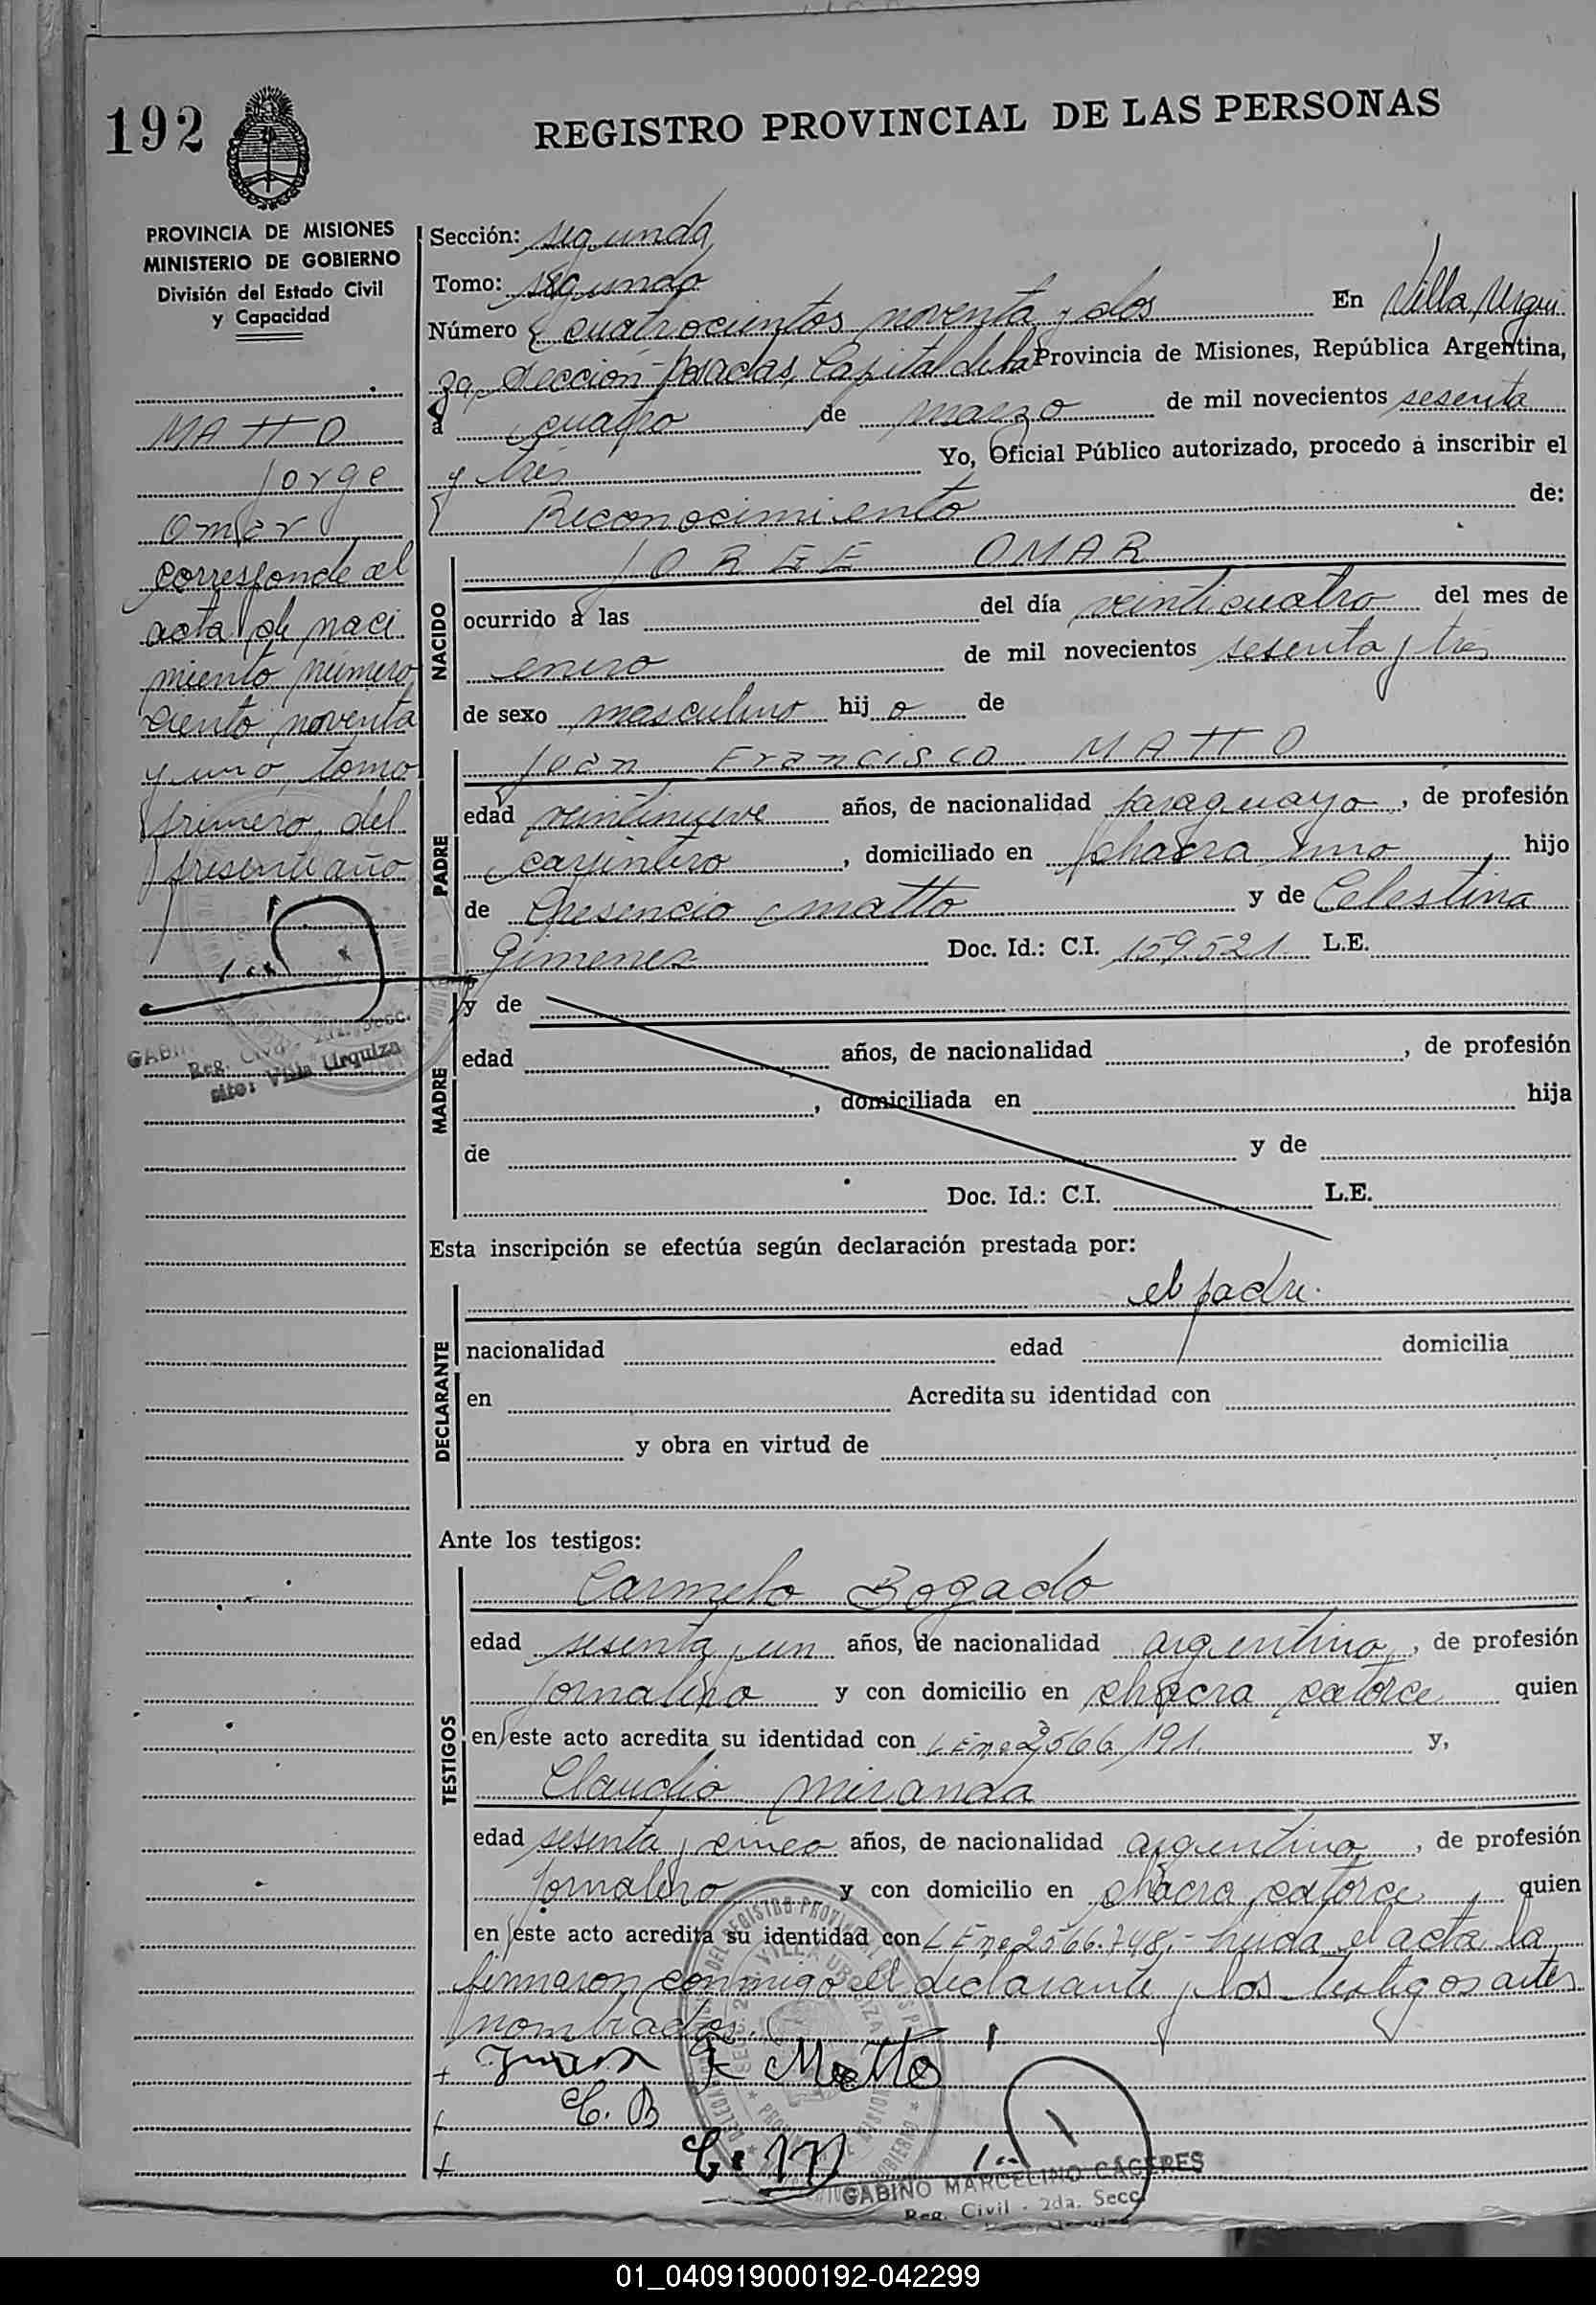 192
REGISTRO PROVINCIAL DE LAS PERSONAS
PROVINCIA DE MISIONES
MINISTERIO DE GOBIERNO
División del Estado Civil
y Capacidad
MATTO
Jorge
Omar
corresponde al
acta de naci
miento número
ciento noventa
y uno, tomo
primero, del
presente año
Reg. Civil - 2da. Secc.
sito: Villa Urquiza
Sección: segunda
Tomo: segundo
Número cuatrocientos noventa y dos En Villa Urqui
za, Sección Posadas, Capital de la Provincia de Misiones, República Argentina,
a cuatro de marzo de mil novecientos sesenta
y tres Yo, Oficial Público autorizado, procedo a inscribir el
Reconocimiento de:
NACIDO
JORGE OMAR
ocurrido a las del día veinticuatro del mes de
enero de mil novecientos sesenta y tres
de sexo masculino hijo de
PADRE
Juan Francisco MATTO
edad veintinueve años, de nacionalidad paraguayo, de profesión
carpintero, domiciliado en chacra uno hijo
de Cresencio Matto y de Celestina
Gimenez Doc. Id.: C.I. 159.521 L.E.
MADRE
y de
edad años, de nacionalidad , de profesión
, domiciliada en hija
de y de
Doc. Id.: C.I. L.E.
Esta inscripción se efectúa según declaración prestada por:
DECLARANTE
el padre.
nacionalidad edad domicilia
en Acredita su identidad con
y obra en virtud de
Ante los testigos:
TESTIGOS
Carmelo Bogado
edad sesenta y un años, de nacionalidad argentino, de profesión
jornalero y con domicilio en chacra catorce quien
en este acto acredita su identidad con L E nº 2566.191 y,
Claudio Miranda
edad sesenta y cinco años, de nacionalidad argentino, de profesión
jornalero y con domicilio en chacra catorce quien
en este acto acredita su identidad con L E nº 2566.748.- Leida el acta la
firmaron conmigo el declarante y los testigos antes
nombrados.
+ Juan F Matto
+ C. B
+ C. M
GABINO MARCELINO CACERES
Reg. Civil - 2da. Secc.
01_040919000192-042299